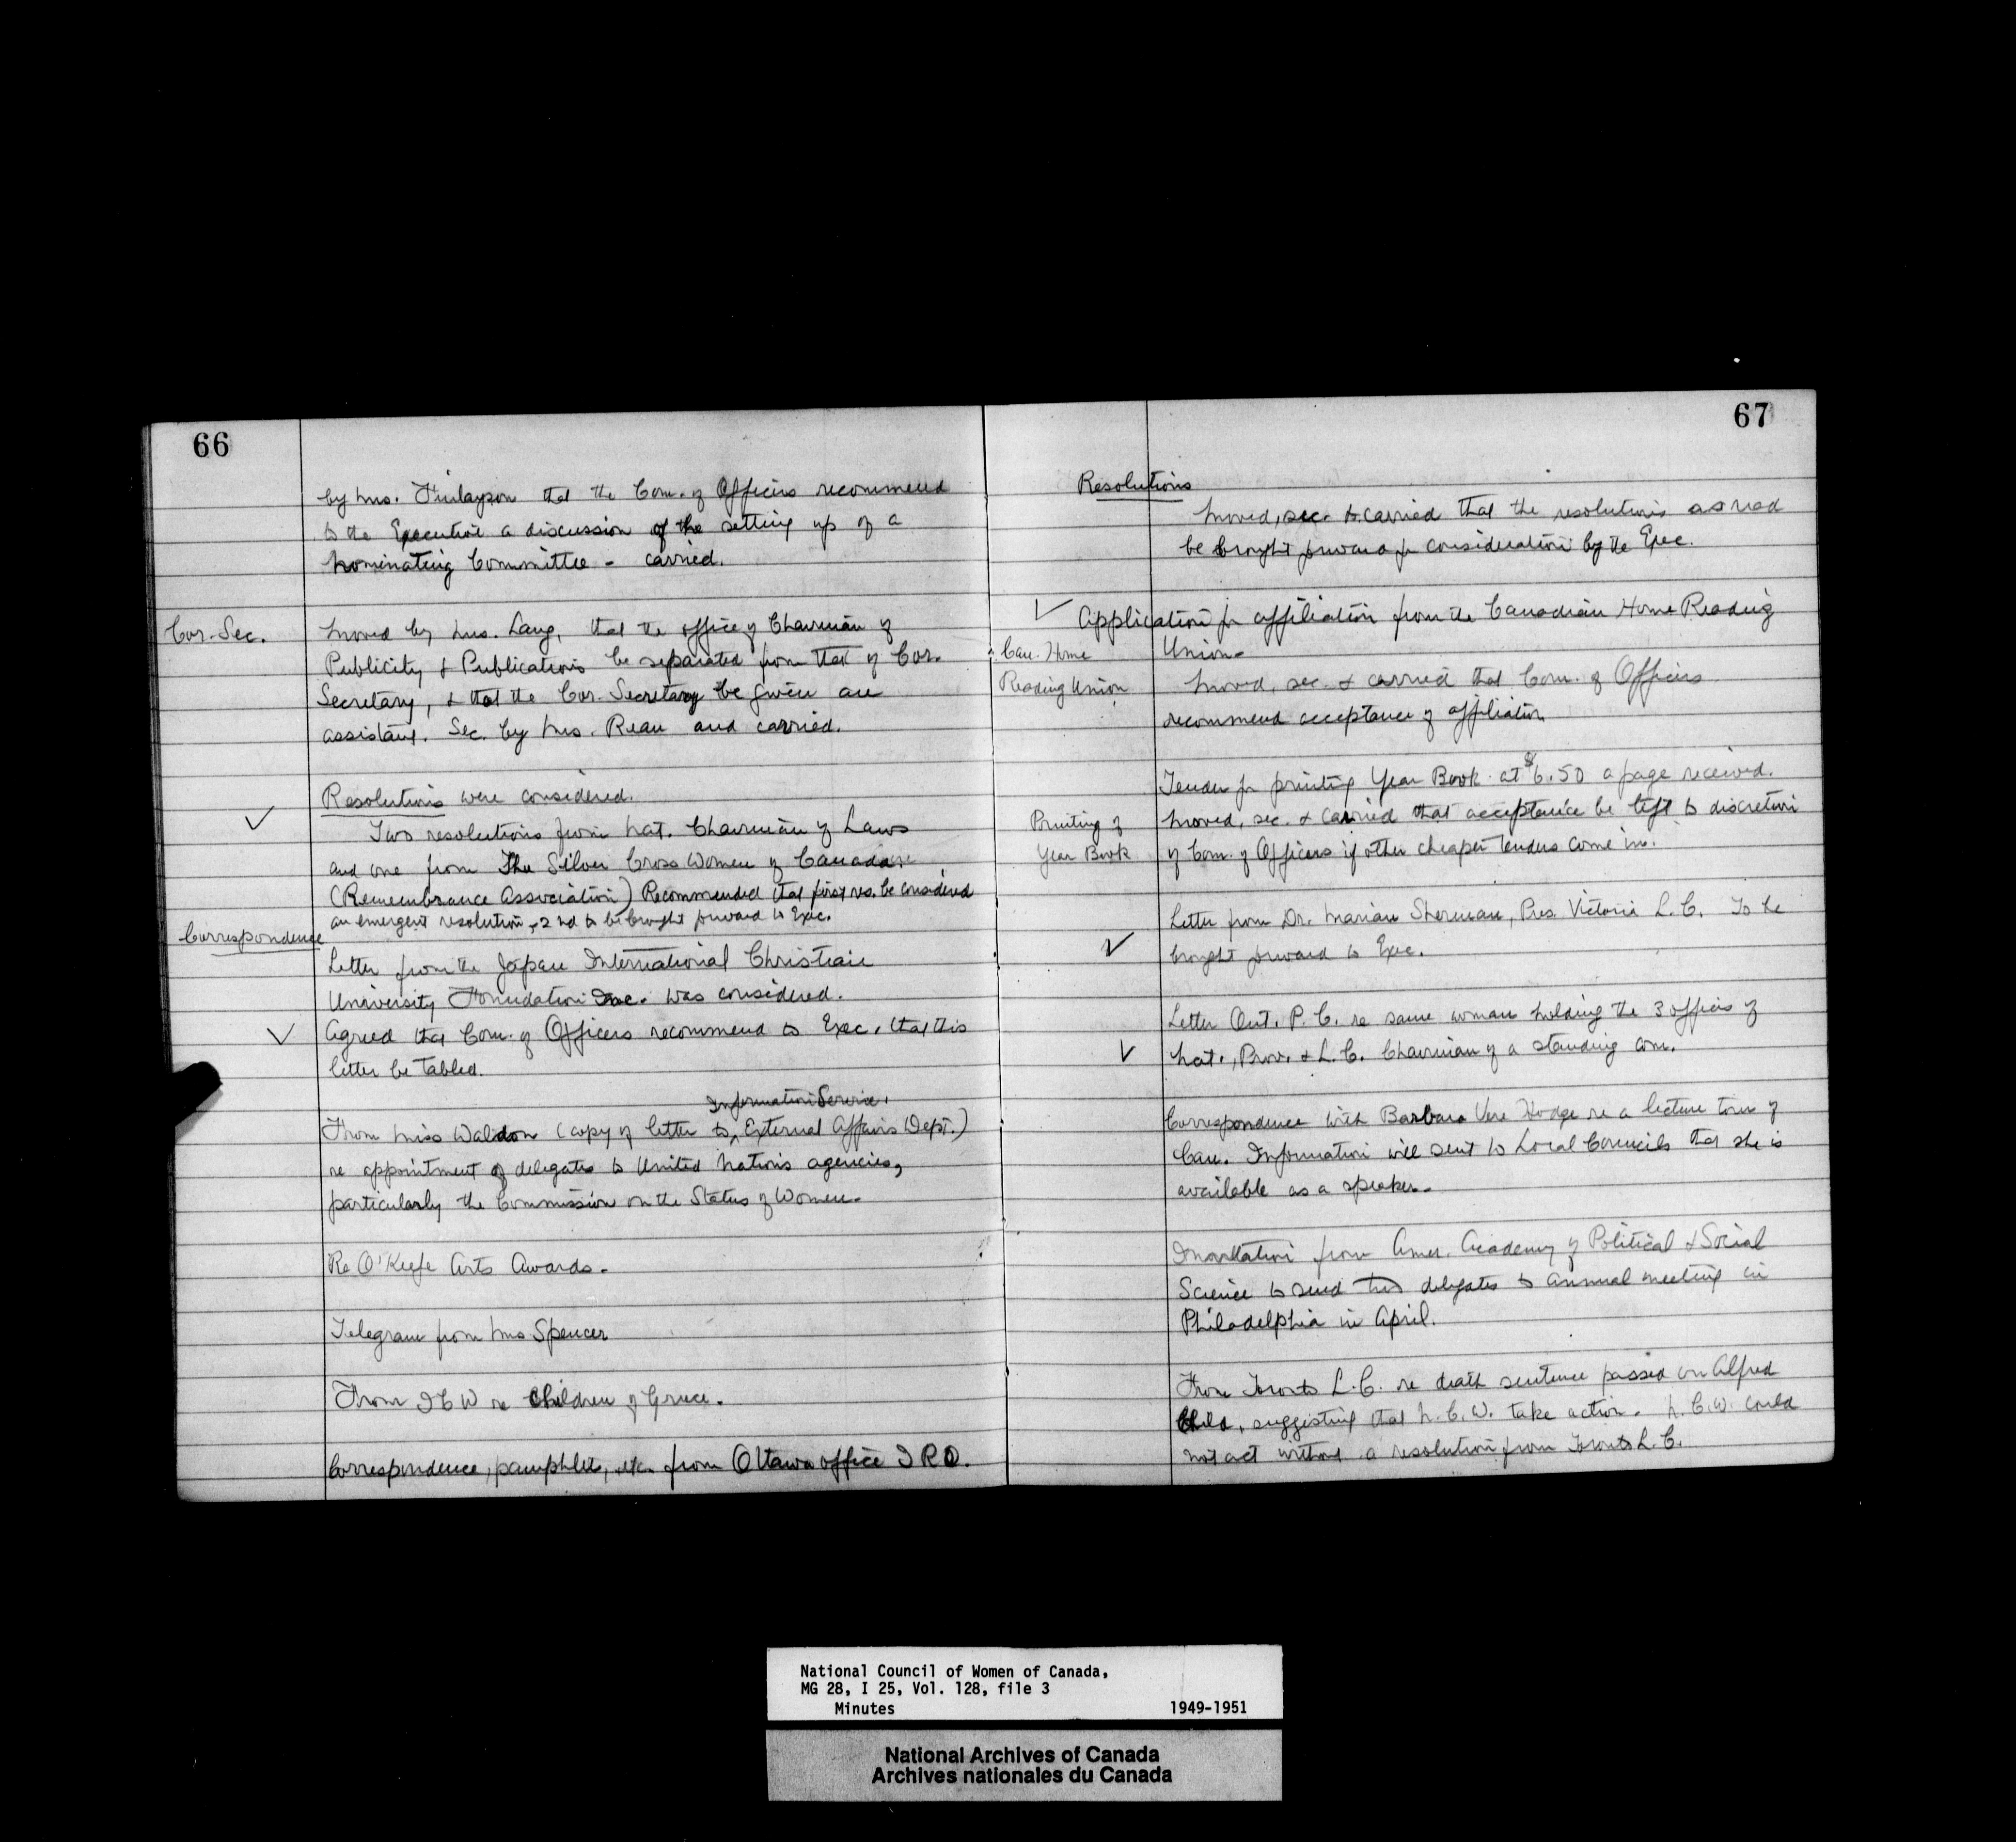 66
by Mrs. Finlayson that the Com. of Officers recommend
to the Executive a discussion of the setting up of a
Nominating Committee - carried.
Cor. Sec.
Moved by Mrs. Lang, that the office of Chairman of
Publicity & Publications be separated from that of Cor.
Secretary, & that the Cor. Secretary be given an
assistant. Sec. by Mrs. Reau and carried.
Resolutions were considered.
Two resolutions from Nat. Chairman of Laws
and one from The Silver Cross Women of Canada
(Remembrance Association) Recommended that first res. be considered
an emergent resolution, 2nd to be brought forward to Exec.
Correspondence
Letter from the Japan International Christian
University Foundation Inc. was considered.
Agreed that Com. of Officers recommend to Exec. that this
letter be tabled.
Information Service,
From Miss Waldon (copy of letter to, External Affairs Dept.)
re appointment of delegates to United Nations agencies,
particularly the Commission on the Status of Women.
Re O'Keefe Arts Awards.
Telegram from Mrs Spencer
From ICW re Children of Greece.
Correspondence, pamphlet, etc. from Ottawa office IRO.
67
Resolutions
Moved, sec. & carried that the resolutions as read
be brought forward for consideration by the Exec.
Application for affiliation from the Canadian Home Reading
Union.
Can. Home
Reading Union
Moved, sec. & carried that Com. of Officers
recommend acceptance of affiliation
Tender for printing Year Book at $6.50 a page received.
Printing of
Year Book
Moved, sec. & carried that acceptance be left to discretion
of Com. of Officers if other cheaper tenders come in.
Letter from Dr. Marian Sherman, Pres. Victoria L.C. To be
brought forward to Exec.
Letter Ont. P.C. re same woman holding the 3 offices of
Nat., Prov. & L.C. Chairman of a standing com.
Correspondence with Barbara Vere Hodge re a lecture tour of
Can. Information will sent to Local Councils that she is
available as a speaker.
Invitation from Amer. Academy of Political & Social
Science to send two delegates to annual meeting in
Philadelphia in April.
From Toronto L.C. re death sentence passed on Alfred
Child, suggesting that N.C.W. take action. N.C.W. could
not act without a resolution from Toronto L.C.
National Council of Women of Canada,
MG 28, I 25, Vol. 128, file 3
Minutes 1949-1951
National Archives of Canada
Archives nationales du Canada